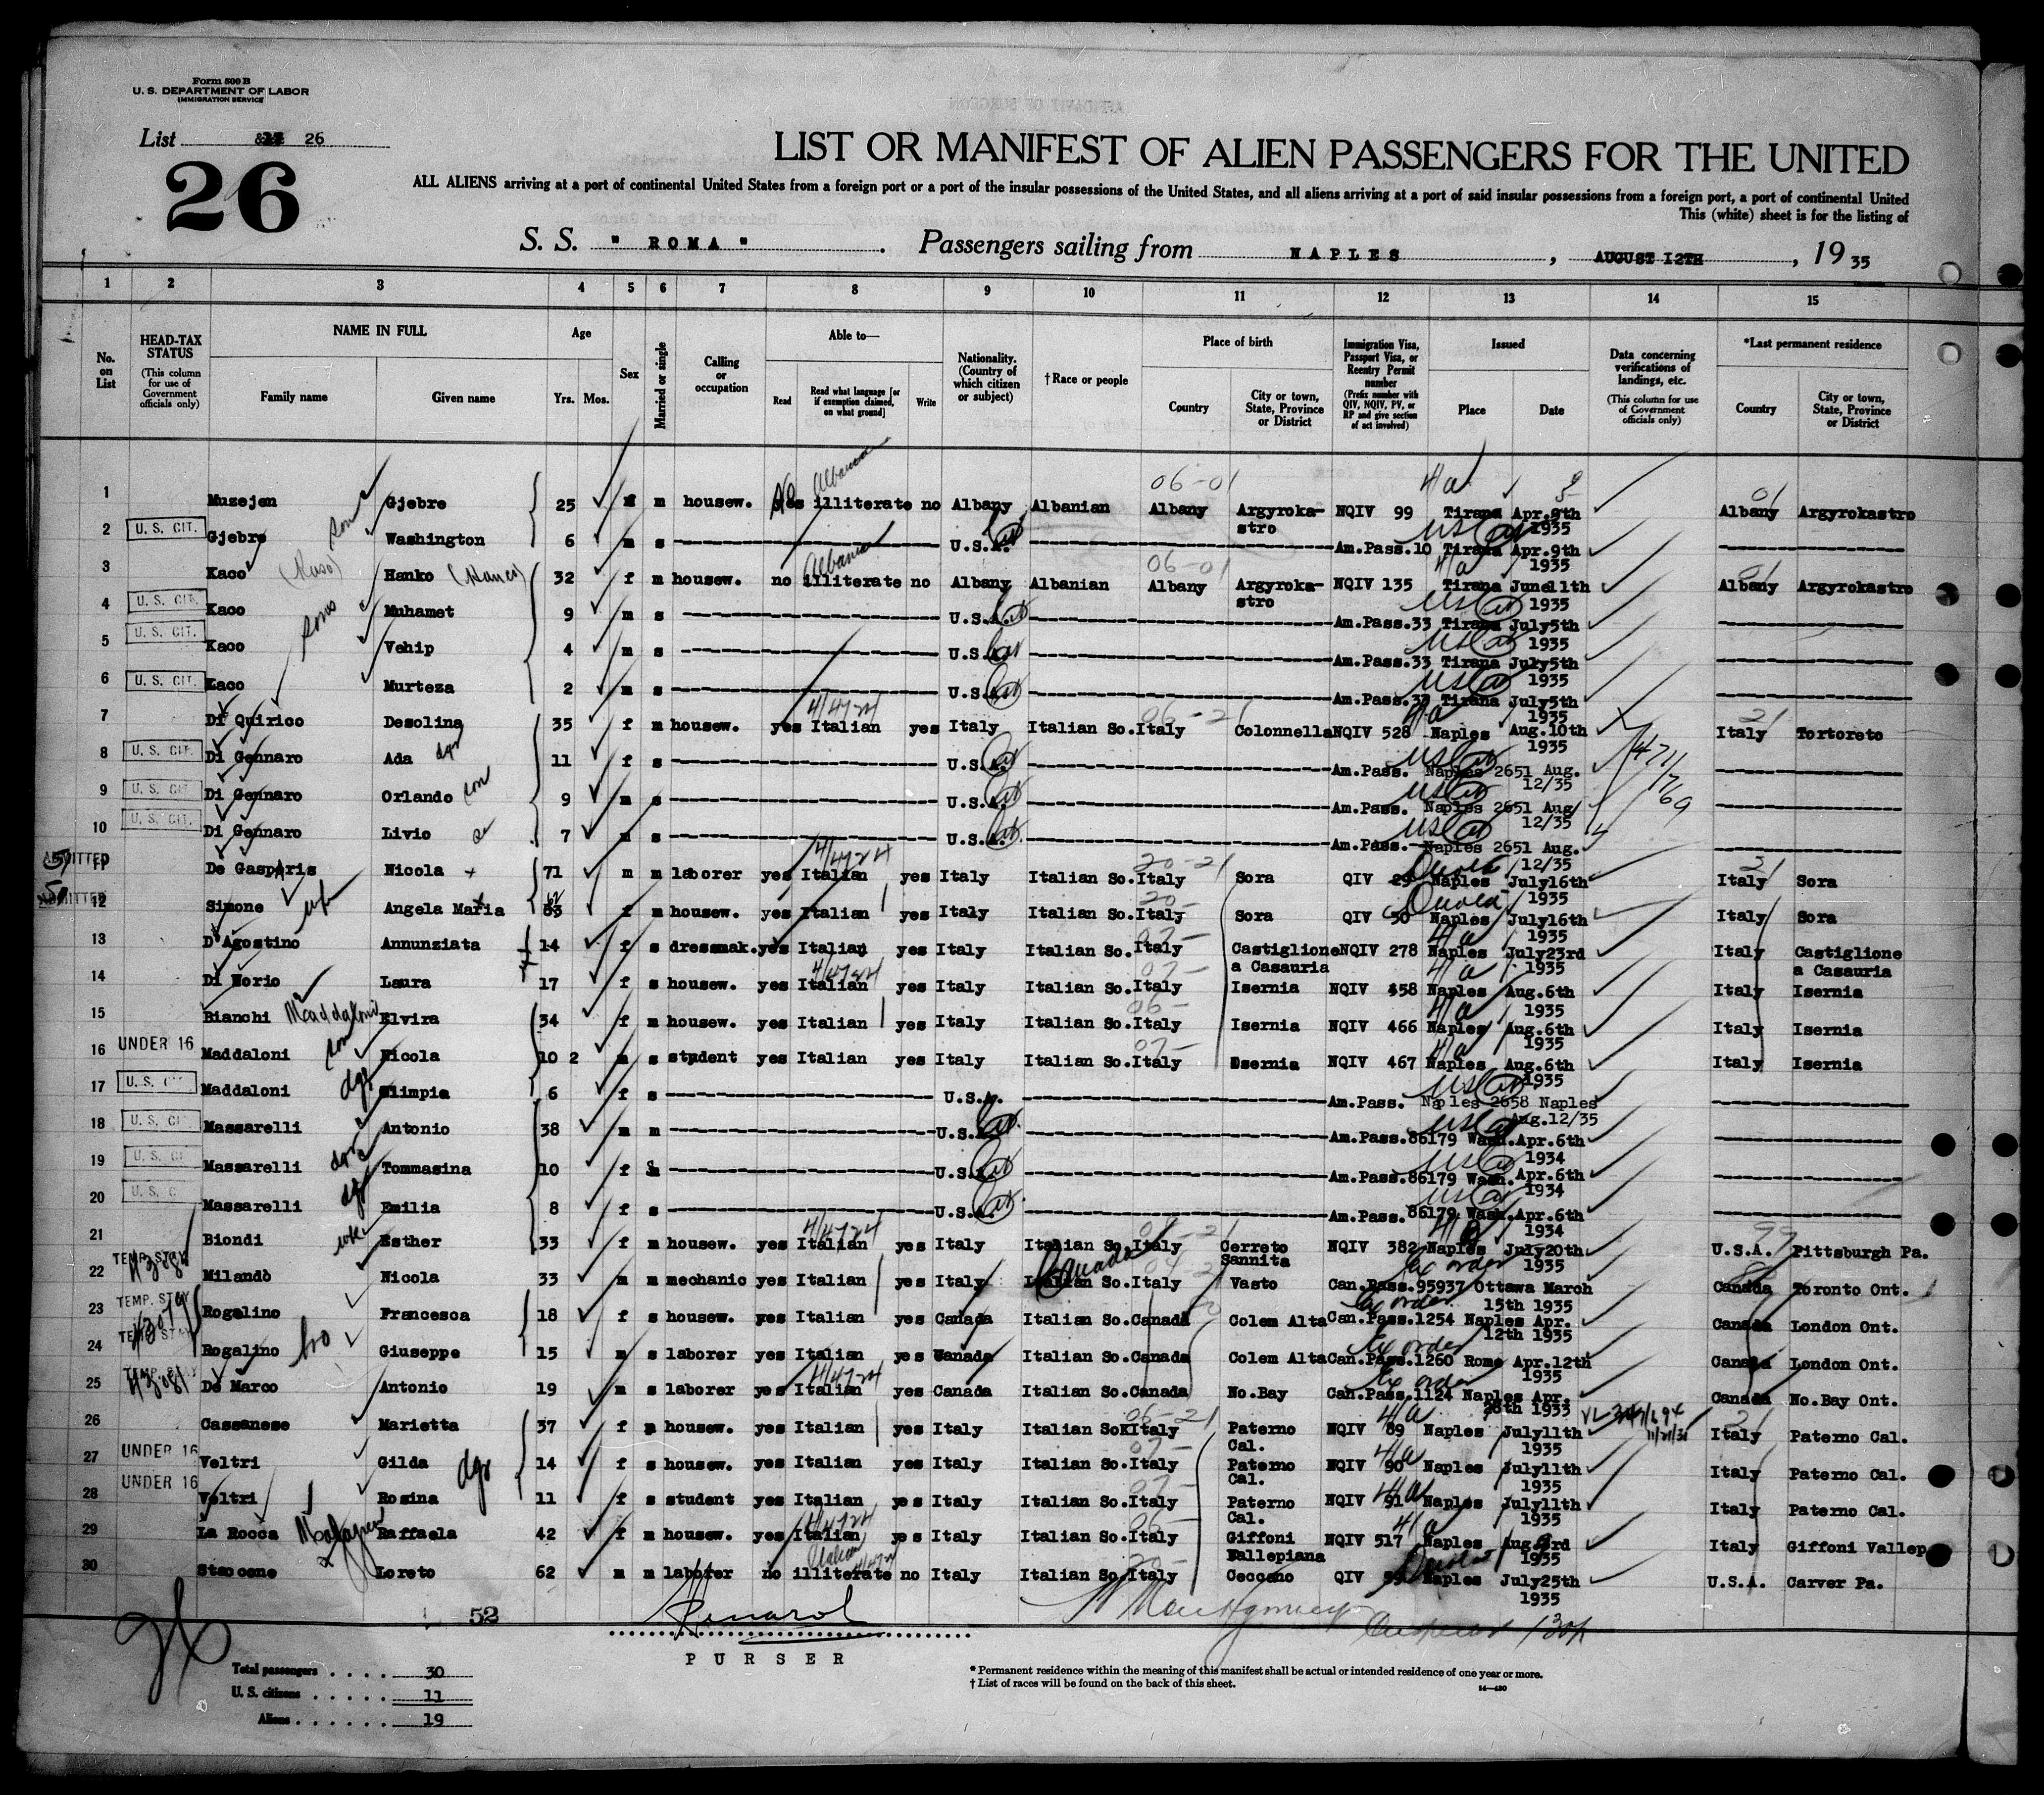 Form 500 B
U. S. DEPARTMENT OF LABOR
IMMIGRATION SERVICE
List 26
26
LIST OR MANIFEST OF ALIEN PASSENGERS FOR THE UNITED
ALL ALIENS arriving at a port of continental United States from a foreign port or a port of the insular possessions of the United States, and all aliens arriving at a port of said insular possessions from a foreign port, a port of continental United
This (white) sheet is for the listing of
S. S. "ROMA". Passengers sailing from NAPLES, AUGUST 12TH, 19 35
1 2 3 4 5 6 7 8 9 10 11 12 13 14 15
No. on List
HEAD-TAX STATUS (This column for use of Government officials only)
NAME IN FULL
Family name Given name
Age
Yrs. Mos.
Sex
Married or single
Calling or occupation
Able to—
Read Read what language [or if exemption claimed, on what ground] Write
Nationality. (Country of which citizen or subject)
† Race or people
Place of birth
Country City or town, State, Province or District
Immigration Visa, Passport Visa, or Reentry Permit number (Prefix number with QIV, NQIV, PV, or RP and give section of act involved)
Issued
Place Date
Data concerning verifications of landings, etc. (This column for use of Government officials only)
*Last permanent residence
Country City or town, State, Province or District
1 Muzejen Gjebre 25 f m housew. No illiterate no Albany Albanian Albany Argyrokastro NQIV 99 Tirana Apr.9th 1935 Albany Argyrokastro
2 U. S. CIT. Gjebre Washington 6 m s U.S.A. Am.Pass.10 Tirana Apr.9th 1935
3 Kaco Hanko 32 f m housew. no illiterate no Albany Albanian Albany Argyrokastro NQIV 135 Tirana June11th 1935 Albany Argyrokastro
4 U. S. CIT. Kaco Muhamet 9 m s U.S.A. Am.Pass.33 Tirana July5th 1935
5 U. S. CIT. Kaco Vehip 4 m s U.S.A. Am.Pass.33 Tirana July5th 1935
6 U. S. CIT. Kaco Murteza 2 m s U.S.A. Am.Pass.33 Tirana July5th 1935
7 Di Quirico Desolina 35 f m housew. yes Italian yes Italy Italian So. Italy Colonnella NQIV 528 Naples Aug.10th 1935 Italy Tortoreto
8 U. S. CIT. Di Gennaro Ada dgr 11 f s U.S.A. Am.Pass. Naples 2651 Aug. 12/35
9 U. S. CIT. Di Gennaro Orlando son 9 m s U.S.A. Am.Pass. Naples 2651 Aug 12/35
10 U. S. CIT. Di Gennaro Livio 7 m s U.S.A. Am.Pass. Naples 2651 Aug. 12/35
11 ADMITTED De Gasparis Nicola 71 m m laborer yes Italian yes Italy Italian So. Italy Sora QIV 29 Naples July16th 1935 Italy Sora
12 ADMITTED Simone Angela Maria f m housew. yes Italian yes Italy Italian So. Italy Sora QIV 30 Naples July16th 1935 Italy Sora
13 D'Agostino Annunziata 14 f s dressmak. yes Italian yes Italy Italian So. Italy Castiglione a Casauria NQIV 278 Naples July23rd 1935 Italy Castiglione a Casauria
14 Di Norio Laura 17 f s housew. yes Italian yes Italy Italian So. Italy Isernia NQIV 458 Naples Aug.6th 1935 Italy Isernia
15 Bianchi Maddaloni Elvira 34 f m housew. yes Italian yes Italy Italian So. Italy Isernia NQIV 466 Naples Aug.6th 1935 Italy Isernia
16 UNDER 16 Maddaloni son Nicola 10 2 m s student yes Italian yes Italy Italian So. Italy Isernia NQIV 467 Naples Aug.6th 1935 Italy Isernia
17 U. S. CIT Maddaloni dgr Olimpia 6 f s U.S.A. Am.Pass. Naples 2658 Naples Aug.12/35
18 U. S. CI Massarelli Antonio 38 m m U.S.A. Am.Pass.86179 Wash. Apr.6th 1934
19 U. S. C Massarelli dgr Tommasina 10 f s U.S.A. Am.Pass.86179 Wash. Apr.6th 1934
20 U. S. C Massarelli dgr Emilia 8 f s U.S.A. Am.Pass.86179 Wash. Apr.6th 1934
21 Biondi Esther 33 f m housew. yes Italian yes Italy Italian So. Italy Cerreto Sannita NQIV 382 Naples July20th 1935 U.S.A. Pittsburgh Pa.
22 TEMP. STAY Milando Nicola 33 m m mechanic yes Italian yes Italy Canada Italian So. Italy Vasto Can.Pass.95937 Ottawa March 15th 1935 Canada Toronto Ont.
23 TEMP. STAY Rogalino Francesca 18 f s housew. yes Italian yes Canada Italian So. Canada Colem Alta Can.Pass.1254 Naples Apr. 12th 1935 Canada London Ont.
24 TEMP. STAY Rogalino bro Giuseppe 15 m s laborer yes Italian yes Canada Italian So. Canada Colem Alta Can.Pass.1260 Rome Apr.12th 1935 Canada London Ont.
25 TEMP. STAY De Marco Antonio 19 m s laborer yes Italian yes Canada Italian So. Canada No.Bay Can.Pass.1124 Naples Apr. 26th 1935 Canada No.Bay Ont.
26 Cassanese Marietta 37 f m housew. yes Italian yes Italy Italian So Italy Paterno Cal. NQIV 89 Naples July11th 1935 Italy Paterno Cal.
27 UNDER 16 Veltri Gilda dgr 14 f s housew. yes Italian yes Italy Italian So. Italy Paterno Cal. NQIV 90 Naples July11th 1935 Italy Paterno Cal.
28 UNDER 16 Veltri Rosina 11 f s student yes Italian yes Italy Italian So. Italy Paterno Cal. NQIV 91 Naples July11th 1935 Italy Paterno Cal.
29 La Rocca Raffaela 42 f m housew. yes Italian yes Italy Italian So. Italy Giffoni Vallepiana NQIV 517 Naples Aug. 1935 Italy Giffoni Vallep
30 Staccone Loreto 62 m m laborer no illiterate no Italy Italian So. Italy Ceccano QIV Naples July25th 1935 U.S.A. Carver Pa.
52
PURSER
Total passengers . . . . 30
U. S. citizens . . . . . 11
Aliens . . . . . . 19
* Permanent residence within the meaning of this manifest shall be actual or intended residence of one year or more.
† List of races will be found on the back of this sheet.
14—430